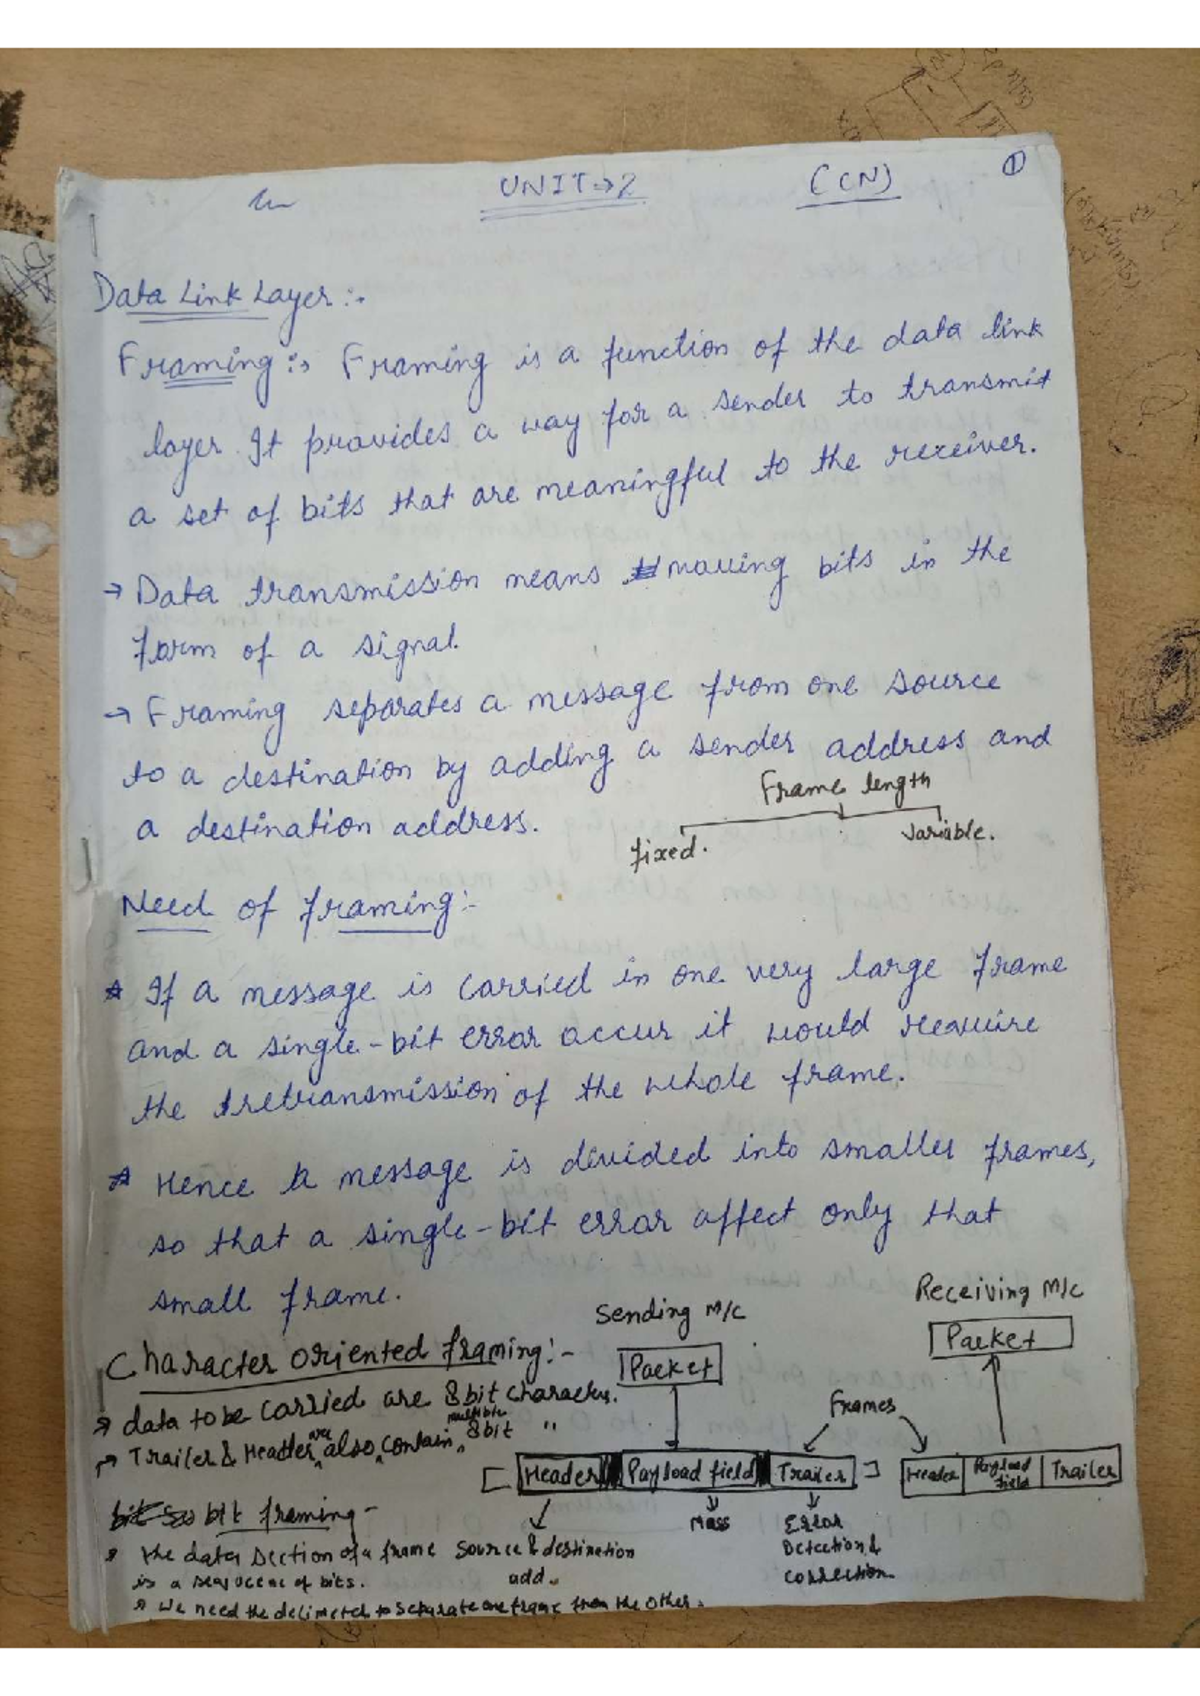 UNIT → 2
(CN)
1
Data Link Layer :-
Framing :- Framing is a function of the data link
layer. It provides a way for a sender to transmit
a set of bits that are meaningful to the receiver.
→ Data transmission means moving bits in the
form of a signal.
→ Framing separates a message from one source
to a destination by adding a sender address and
a destination address.
Frame length
fixed.
variable.
Need of framing :-
* If a message is carried in one very large frame
and a single-bit error occur it would require
the retransmission of the whole frame.
* Hence a message is divided into smaller frames,
so that a single-bit error affect only that
small frame.
Sending M/C
Receiving M/C
Packet
Packet
Character oriented framing :-
→ data to be carried are 8 bit characters.
→ Trailer & Header are also contain multiple 8 bit "
Frames
[ Header Payload field Trailer ]
Header Payload field Trailer
Source & destination
add.
Mass
Error
Detection &
correction
bit framing -
* the data section of a frame
is a sequence of bits.
* We need the delimeter to separate one frame from the other.